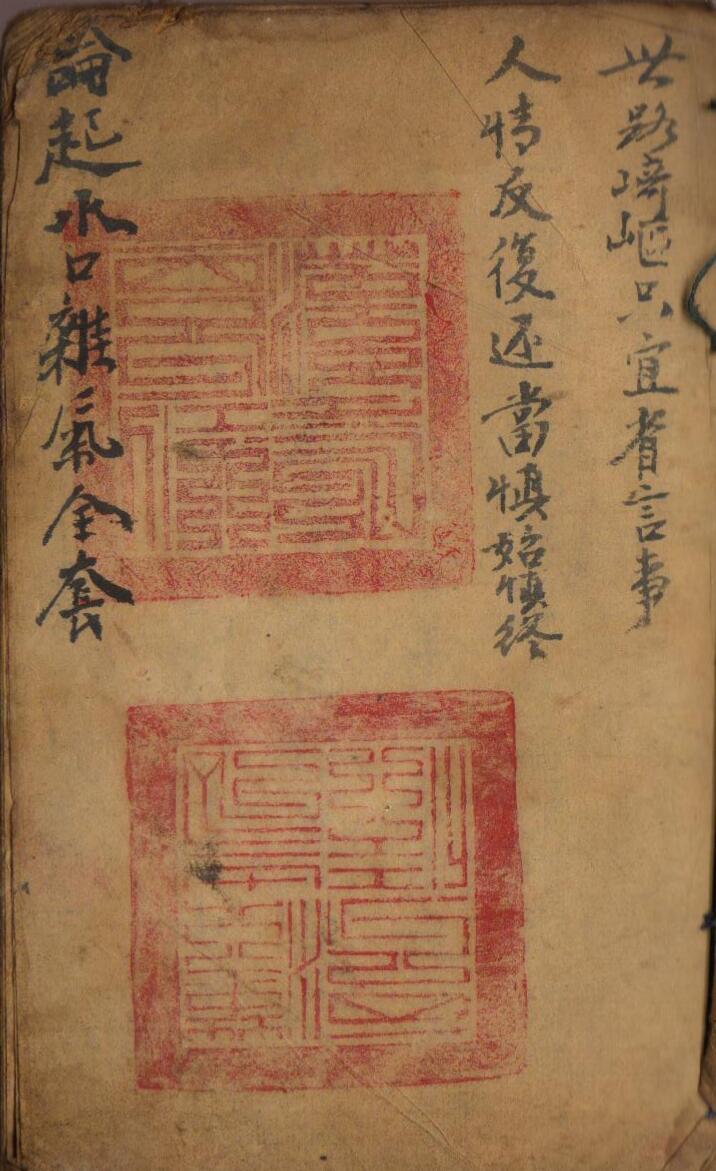 世路崎嶇只宜省言事
人情反復还當慎始慎終
漢壽
亭侯
論起水口雜氣全套